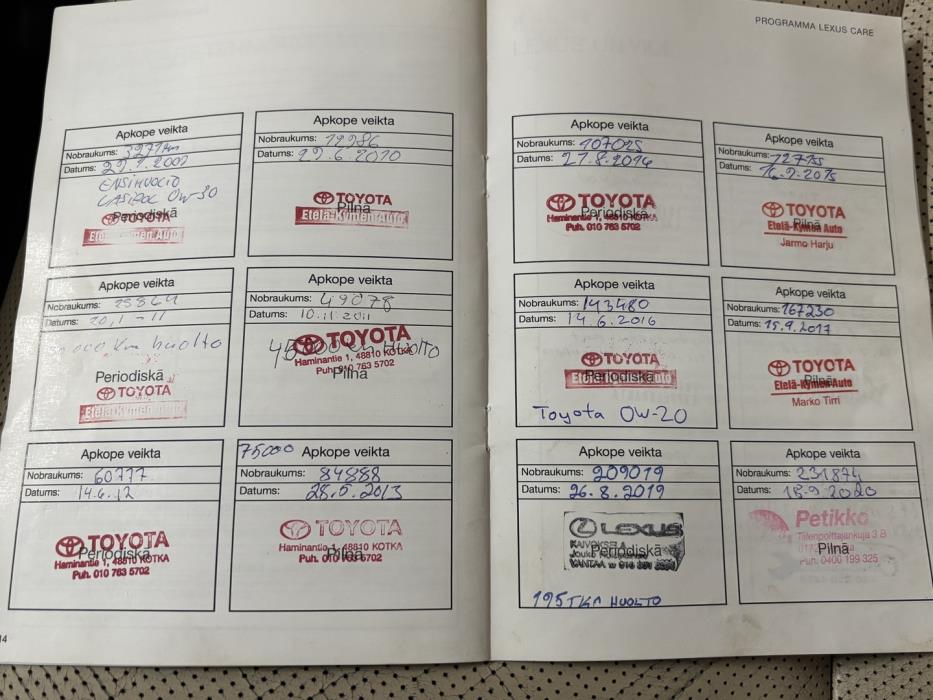 PROGRAMMA LEXUS CARE
Apkope veikta
Nobraukums: 3271 km
Datums:
ENSIHUOLTO
0W-30
Periodiskā
TOYOTA
Etelä-Kymen Auto
Apkope veikta
Nobraukums: 19986
Datums: 29.6.2010
TOYOTA
Etelä-Kymen Auto
Pilnā
Apkope veikta
Nobraukums:
Datums: 20.1-11
000 km huolto
Periodiskā
TOYOTA
Etelä-Kymen Auto
Apkope veikta
Nobraukums: 49078
Datums: 10.11.2011
Huolto
TOYOTA
Haminantie 1, 48810 KOTKA
Puh. 010 763 5702
Pilnā
Apkope veikta
Nobraukums: 60777
Datums: 14.6.12
TOYOTA
Periodiskā
Haminantie 1, 48810 KOTKA
Puh. 010 763 5702
75000 Apkope veikta
Nobraukums: 84888
Datums: 28.5.2013
TOYOTA
Haminantie 1, 48810 KOTKA
Pilnā
Puh. 010 763 5702
14
Apkope veikta
Nobraukums: 107025
Datums: 27.8.2014
TOYOTA
Periodiskā
Haminantie 1, 48810 KOTKA
Puh. 010 763 5702
Apkope veikta
Nobraukums:
Datums: 16.9.2015
TOYOTA
Pilnā
Etelä-Kymen Auto
Jarmo Harju
Apkope veikta
Nobraukums: 143480
Datums: 14.6.2016
TOYOTA
Etelä-Kymen Auto
Periodiskā
Toyota 0W-20
Apkope veikta
Nobraukums: 167230
Datums: 15.9.2017
TOYOTA
Pilnā
Etelä-Kymen Auto
Marko Tirri
Apkope veikta
Nobraukums: 209019
Datums: 26.8.2019
LEXUS
KAIVOKSELA
Periodiskā
VANTAA
195TKM HUOLTO
Apkope veikta
Nobraukums: 231874
Datums: 18.9.2020
Petikko
Tiilenpoltt­ajankuja 3 B
Pilnā
Puh. 0400 199 325